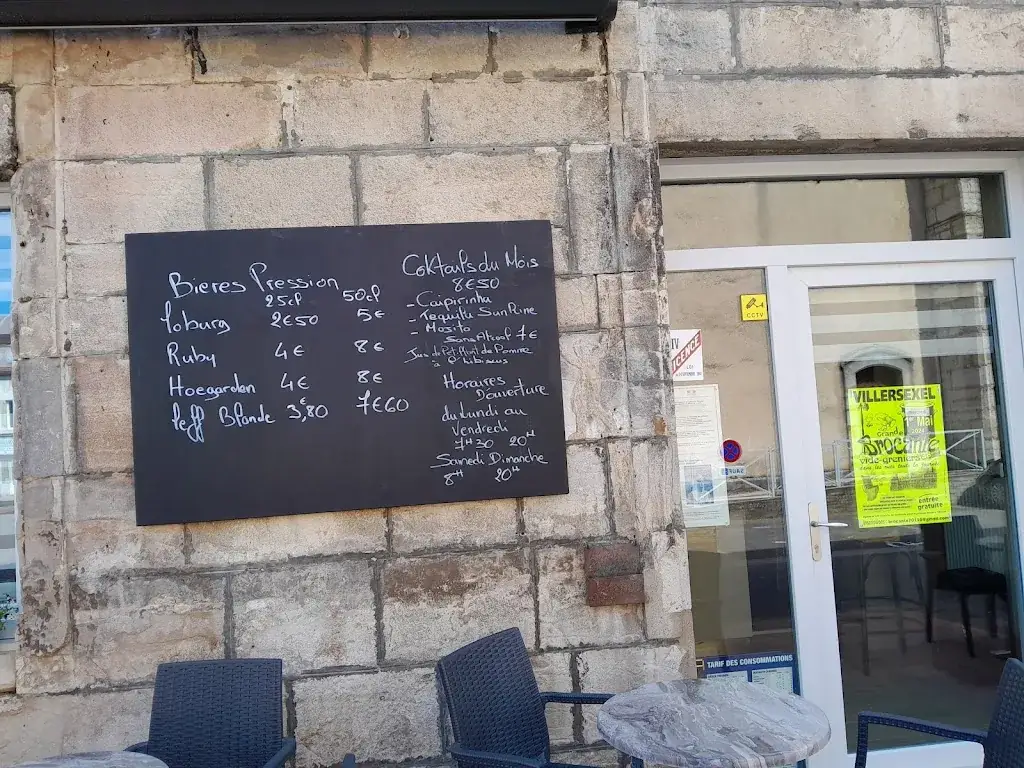 Bieres Pression
25cl 50cl
Loburg 2€50 5€
Ruby 4€ 8€
Hoegarden 4€ 8€
Leff Blonde 3,80€ 7€60
Coktails du Mois
8€50
- Caipirinha
- Tequila SunRine
- Mojito
SansAlcool 7€
Horaires
D'ouverture
du Lundi au
Vendredi
7H30 20H
Samedi Dimanche
8H 20H
CCTV
LICENCE
IV
VILLERSEXEL
1er Mai
2024
Grande
Brocante
vide-greniers
entrée
gratuite
TARIF DES CONSOMMATIONS